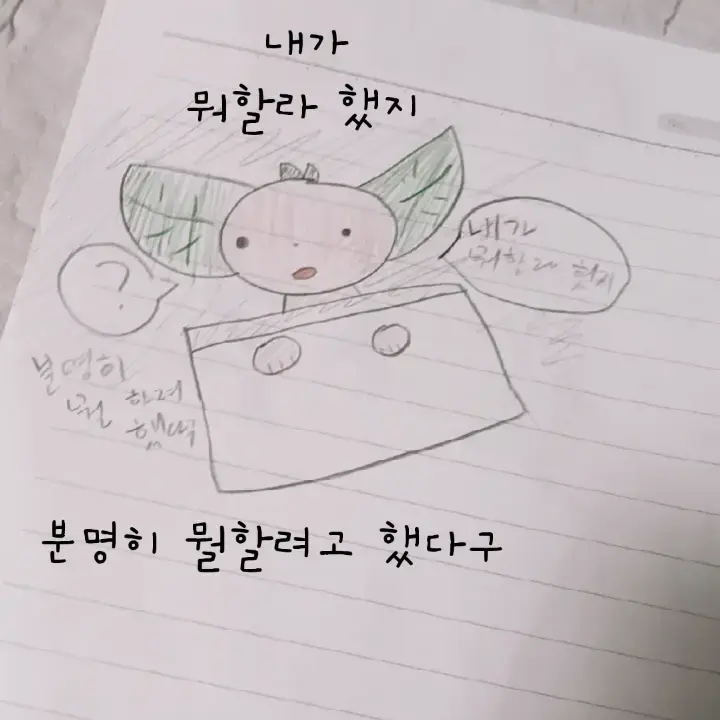 내가
뭐할라 했지
내가
뭐할라 했지
?
분명히
뭔 하려
분명히 뭘할려고 했다구